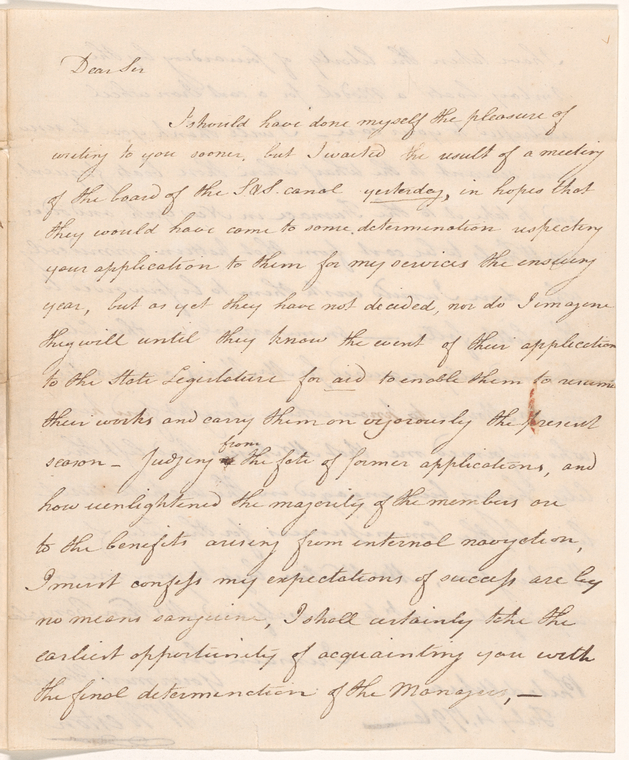 Dear Sir
I should have done myself the pleasure of
writing to you sooner, but I waited the result of a meeting
of the board of the S&S. canal yesterday, in hopes that
they would have come to some determination respecting
your application to them for my services the ensuing
year, but as yet they have not decided, nor do I imagene
they will until they know the event of their application
to the State Legislature for aid to enable them to resume
their works and carry them on vigorously the present
season – Judging from the fate of former applications, and
how unenlightened the majority of the members are
to the benefits arising from internal navigation,
I must confess my expectations of success are by
no means sanguine, I shall certainly take the
earliest opportunity of acquainting you with
the final determination of the Managers, –